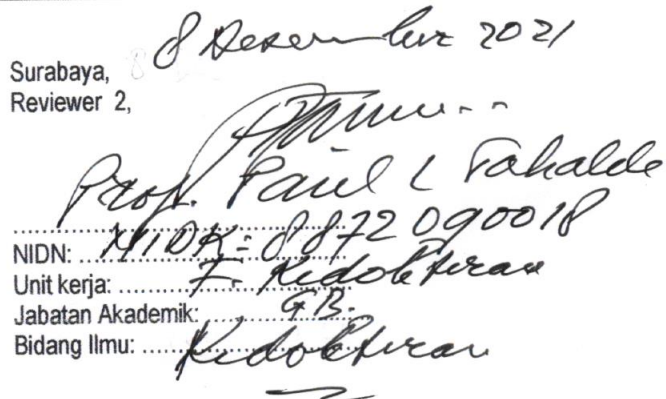 Surabaya, 8 Desember 2021
Reviewer 2,
Prof. Paul L Tahalele
NIDN: NIDK: 8872090018
Unit kerja: F. Kedokteran
Jabatan Akademik: GB.
Bidang Ilmu: Kedokteran